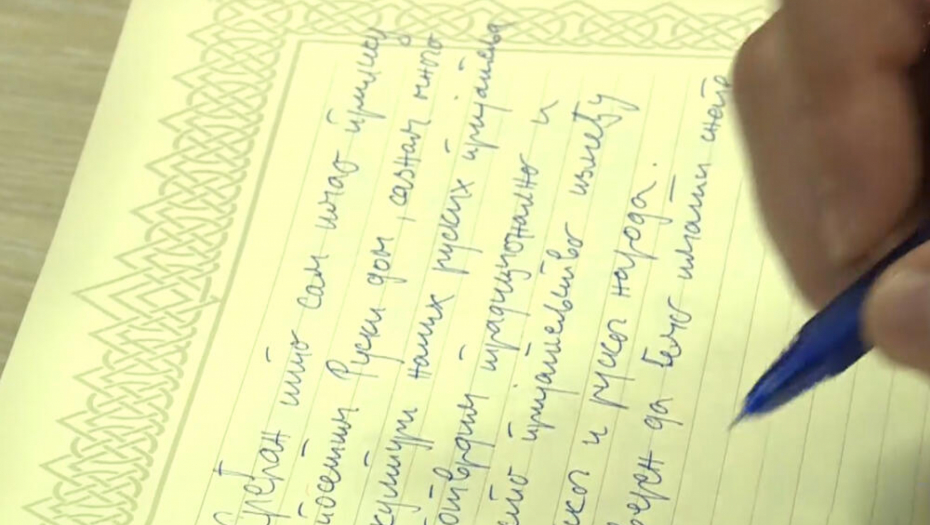 Срећан што сам имао прилику
посетим Руски дом, сазнам много
култури наших руских пријатеља
потврдим традиционално и
пријатељство између
и руског народа.
да ћемо имати